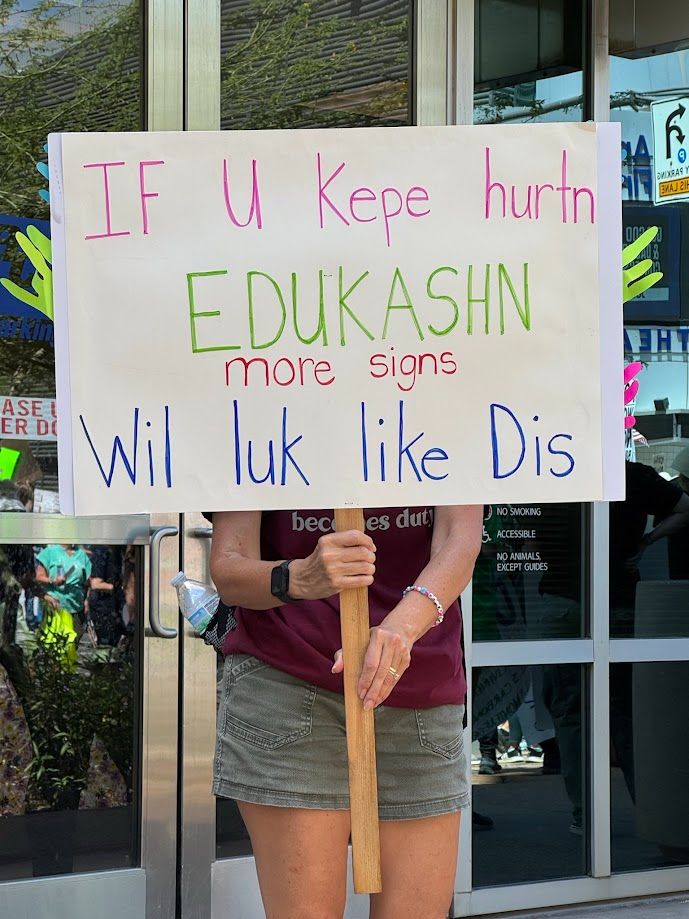 IF U Kepe hurtn
EDUKASHN
more signs
Wil luk like Dis
becomes duty
NO SMOKING
ACCESSIBLE
NO ANIMALS,
EXCEPT GUIDES
ASE
ER DO